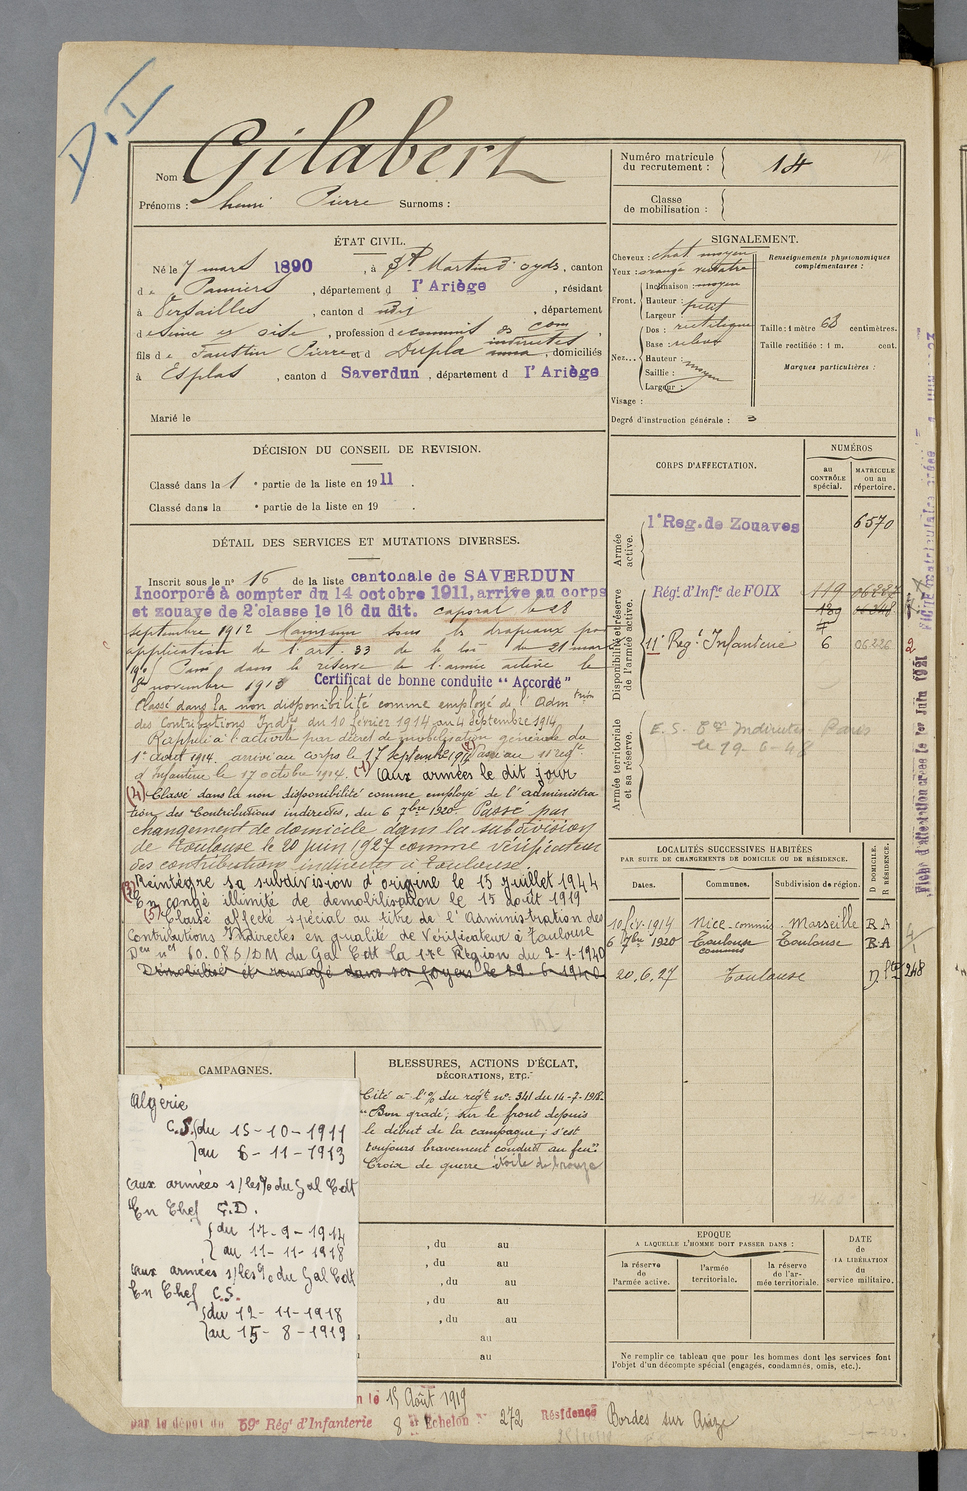 D.I
Nom : Gilabert
Prénoms : henri Pierre Surnoms :
ÉTAT CIVIL.
Né le 7 mars 1890, à St Martin d'oyds, canton
de Pamiers, département d l'Ariège, résidant
à Versailles, canton d udit, département
de Seine et oise, profession de commis des con indirectes
fils de Faustin Pierre et d Dupla, domiciliés
à Esplas, canton d Saverdun, département d l'Ariège
Marié le
DÉCISION DU CONSEIL DE REVISION.
Classé dans la 1e partie de la liste en 1911.
Classé dans la e partie de la liste en 19 .
DÉTAIL DES SERVICES ET MUTATIONS DIVERSES.
Inscrit sous le no 16 de la liste cantonale de SAVERDUN
Incorporé à compter du 14 octobre 1911, arrive au corps
et zouave de 2e classe le 16 du dit. caporal le 28
septembre 1912 Maintenu sous les drapeaux par
application de l'art. 33 de la loi du 21 mars
190 Passé dans la réserve de l'armée active le
8 novembre 1913 Certificat de bonne conduite "Accordé"
Classé dans la non disponibilité comme employé de l'Admtrion
des Contributions Indtes du 10 février 1914 au 4 septembre 1914
Rappelé à l'activité par décret de mobilisation générale du
1er août 1914. arrivé au corps le 17 septembre 1914 Passé au 11e régt
d'Infanterie le 17 octobre 1914. (1) aux armées le dit jour
(4) Classé dans la non disponibilité comme employé de l'administra
tion des Contributions indirectes, du 6 7bre 1920. Passé par
changement de domicile dans la subdivision
de Toulouse le 20 juin 1927 comme vérificateur
des contributions indirectes à Toulouse.
Réintègre sa subdivision d'origine le 15 juillet 1944
(3) En congé illimité de démobilisation le 15 août 1919
(5) Classé affecté spécial au titre de l'Administration des
Contributions Indirectes en qualité de Vérificateur à Toulouse
Don no 60.085/DM du Gal Cdt la 17e Région du 2-1-1940
Démobilisé et renvoyé dans ses foyers le 29-6-1940
CAMPAGNES.
Algérie
C.S. du 15-10-1911
au 6-11-1913
aux armées s/les % du Gal Cdt
En Chef C.D.
du 17-9-1914
au 11-11-1918
aux armées s/les % du Gal Cdt
En Chef C.S.
du 12-11-1918
au 15-8-1919
BLESSURES, ACTIONS D'ÉCLAT,
DÉCORATIONS, ETC.
Cité à l'% du régt no 341 du 14-7-1918
"Bon gradé; sur le front depuis
le début de la campagne; s'est
toujours bravement conduit au feu".
Croix de guerre étoile de bronze
, du au
, du au
, du au
, du au
, du au
au
au
n le 15 Août 1919
par le dépôt du 59e Régt d'Infanterie 8e Echelon No 272 Résidence Bordes sur Arize
Numéro matricule
du recrutement : 14
Classe
de mobilisation :
SIGNALEMENT.
Cheveux : chat moyen
Yeux : orangé verdâtre
Front. Inclinaison : moyen
Hauteur : petit
Largeur :
Nez... Dos : rectiligne
Base : relevé
Hauteur : moyen
Saillie :
Largeur :
Visage :
Degré d'instruction générale : 3
Renseignements physionomiques
complémentaires :
Taille : 1 mètre 68 centimètres.
Taille rectifiée : 1 m. cent.
Marques particulières :
CORPS D'AFFECTATION.
NUMÉROS
au
CONTRÔLE
spécial.
MATRICULE
ou au
répertoire.
Armée
active.
1er Reg. de Zouaves 6570
Disponibilité et réserve
de l'armée active.
Régt d'Infie de FOIX 119
11e Régt Infanterie 6 06236
Armée territoriale
et sa réserve.
E.S. Con Indirectes - Paris
le 19-6-48
LOCALITÉS SUCCESSIVES HABITÉES
PAR SUITE DE CHANGEMENTS DE DOMICILE OU DE RÉSIDENCE.
Dates. Communes. Subdivision de région. D DOMICILE. R RÉSIDENCE.
10 fév. 1914 Nice - commis Marseille R.A
6 7bre 1920 Toulouse commis Toulouse R.A
20.6.27 Toulouse D 248
EPOQUE
A LAQUELLE L'HOMME DOIT PASSER DANS :
la réserve
de
l'armée active.
l'armée
territoriale.
la réserve
de l'ar-
mée territoriale.
DATE
de
LA LIBÉRATION
du
service militaire.
Ne remplir ce tableau que pour les hommes dont les services font
l'objet d'un décompte spécial (engagés, condamnés, omis, etc.).
Fiche d'affectation créée le 1er Juin 1921